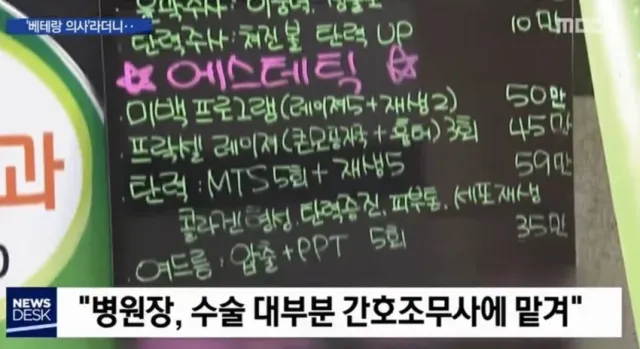 '베테랑 의사'라더니‥
MBC
탄력주사: 처진볼 탄력 UP 10만
에스테틱
미백 프로그램(레이저5+재생2) 50만
프락셀 레이저(큰모공자국+흉터) 3회 45만
탄력: MTS 5회 + 재생5 59만
콜라겐 형성, 탄력증진, 피부톤, 세포재생
여드름: 압출+PPT 5회 35만
과
NEWS DESK
"병원장, 수술 대부분 간호조무사에 맡겨"